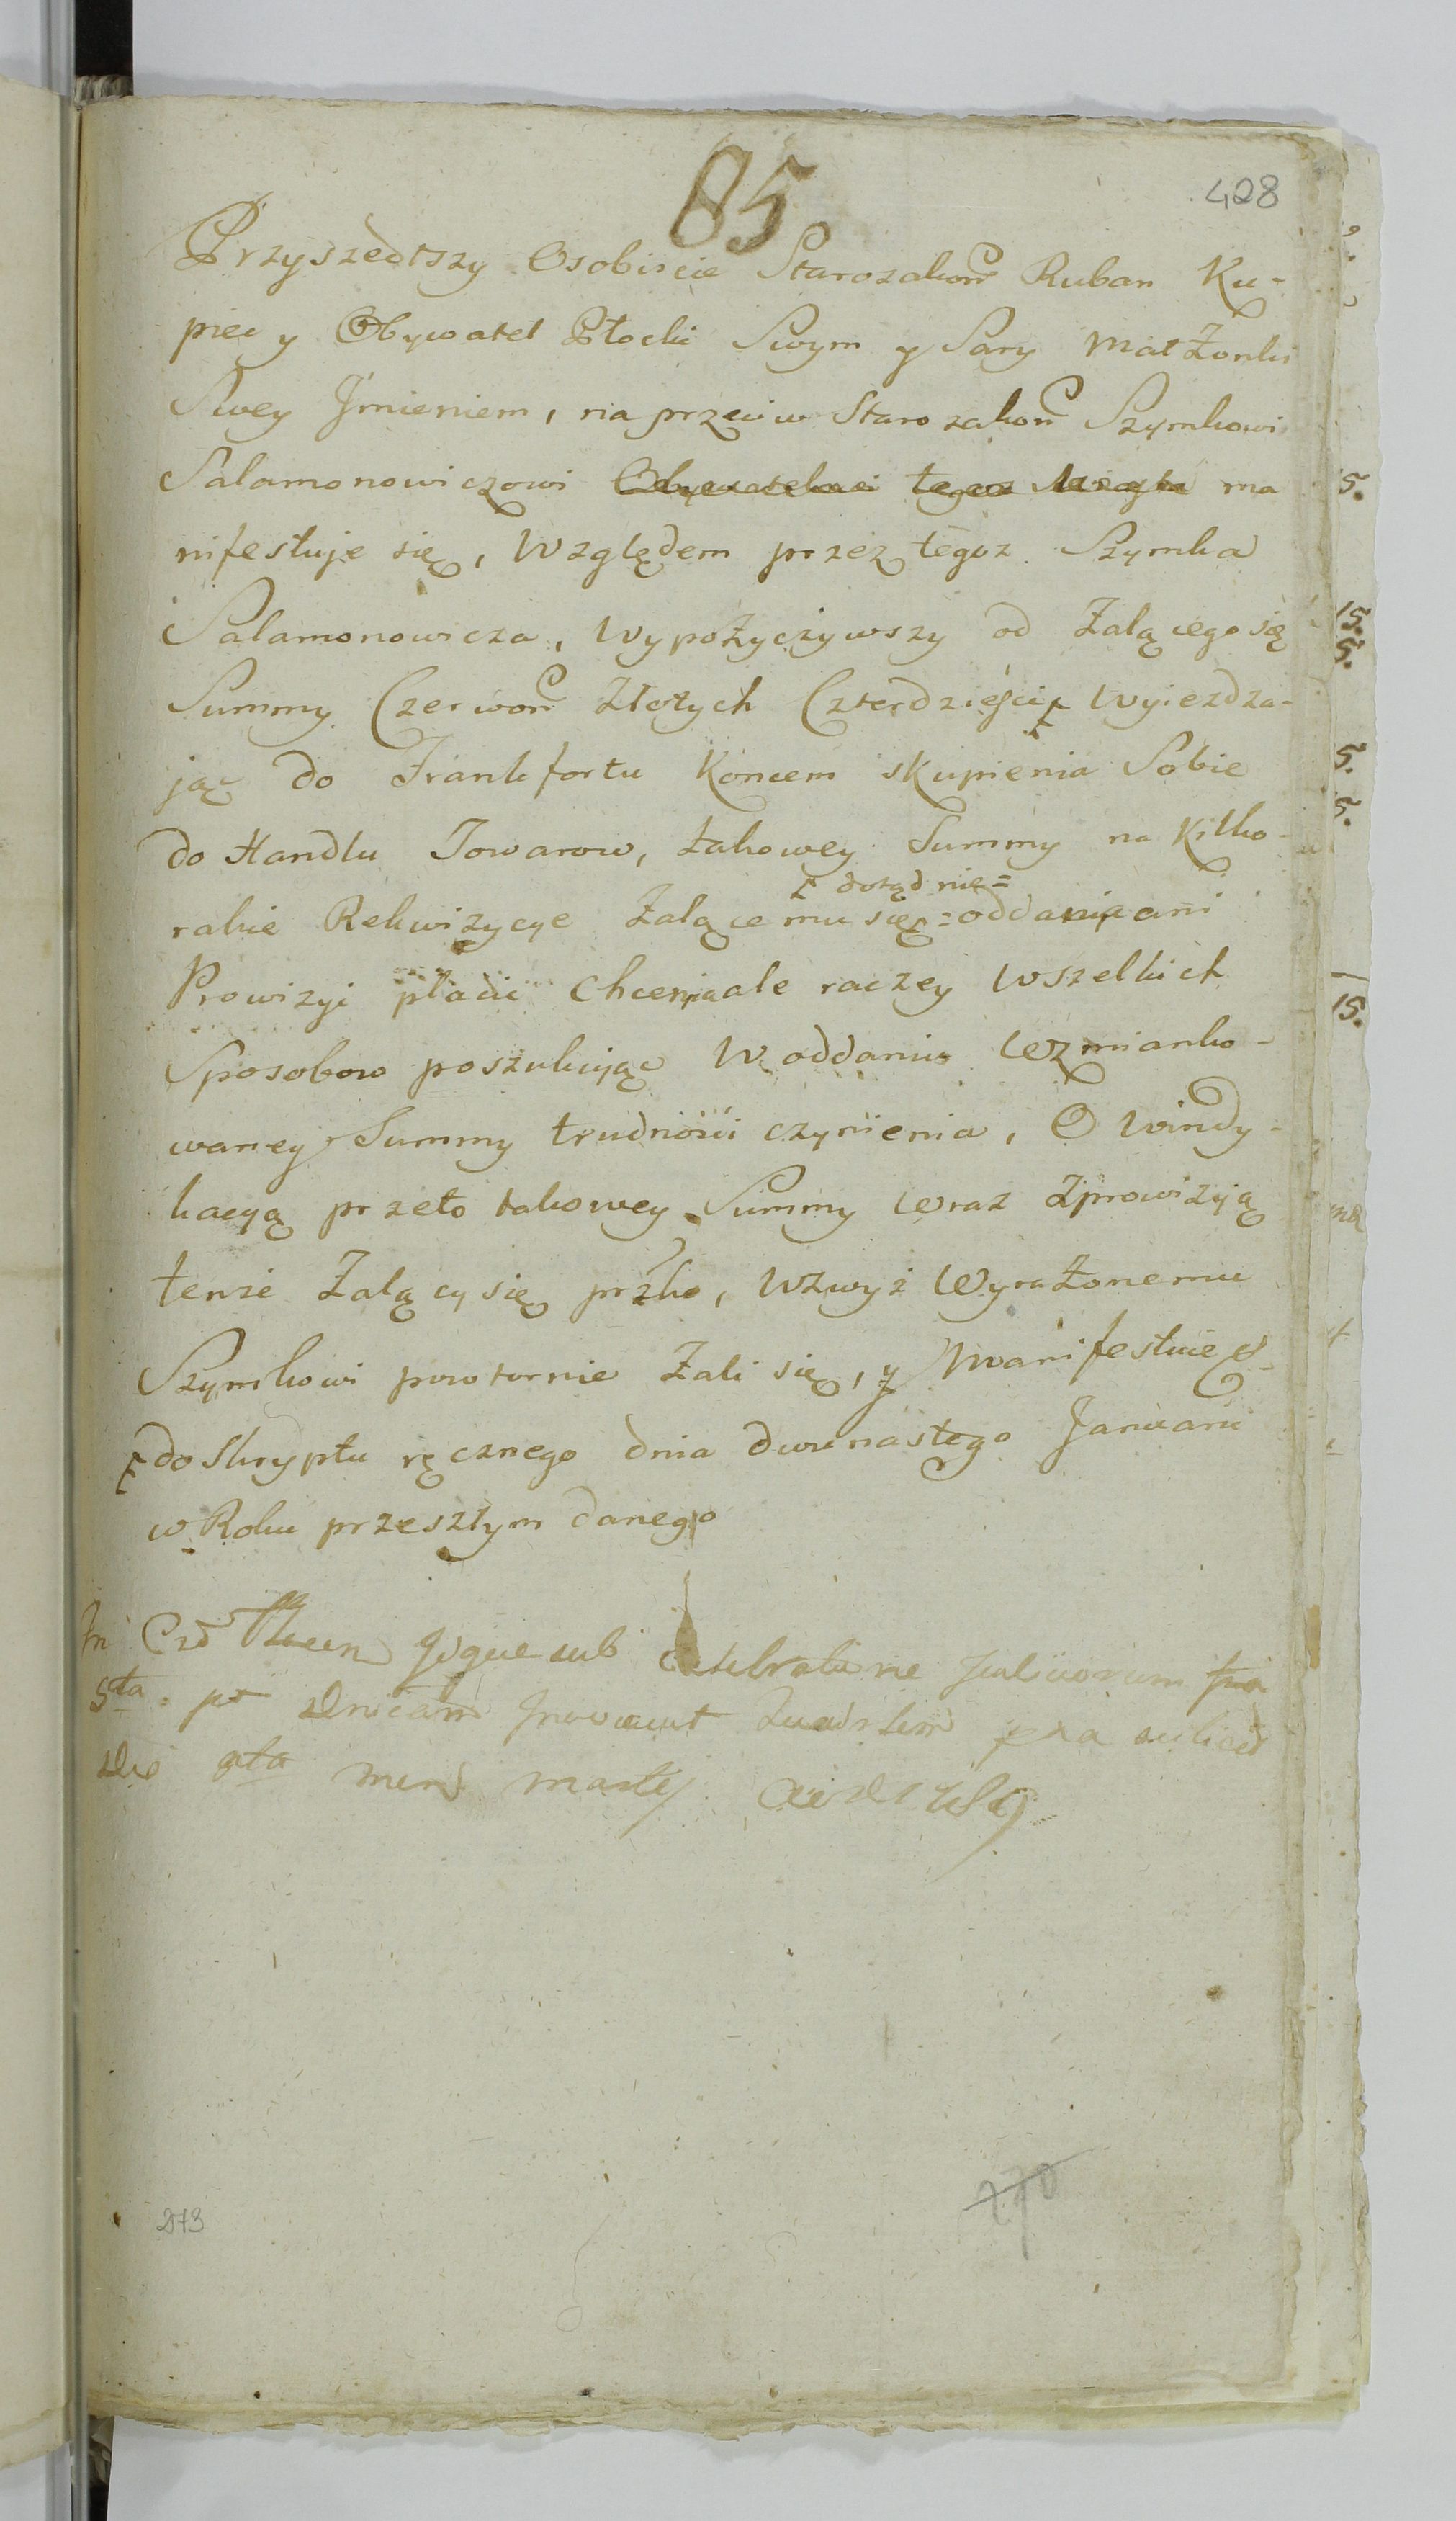 85
428
Przyszedłszy Osobiscie Starozakonn Ruban Ku-
piec y Obywatel Płocki Swym y Sary Małżonki
Swey Jmieniem, na przeciw Starozakonn Szymkowi
Salamonowiczowi Obywatelowi tegoż Miasta ma
nifestuje się, Względem przez tegoz Szymka
Salamonowicza, Wypożyczywszy od Żalącego się
Summy Czerwon Złotych Czterdzieści Wyiezdza-
jąc do Frankfortu Koncem skupienia Sobie
do Handlu Towarow, takowey Summy na Kilko-
dotąd nie=
rakie Rekwizycye Żalącemu się = oddanie ani
Prowizyi płacić Chcenia ale raczey Wszelkich
Sposobow poszukując W oddaniu Wzmianko-
waney Summy trudności czynienia, O Windy-
kacyą przeto takowey Summy Wraz Zprowizyą
tenże Żalący się przko, Wzwyż Wyrażonemu
Szymkowi powtornie Żali się, y Manifestuie
do Skryptu ręcznego dnia dwunastego Januarii
w Roku przeszłym danego
In
sub
5ta
die mens martij 1789
273
270